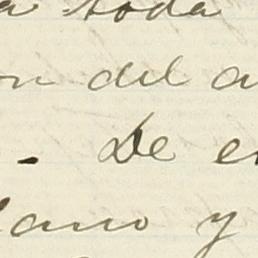 a toda
on del a
. De en
lano y